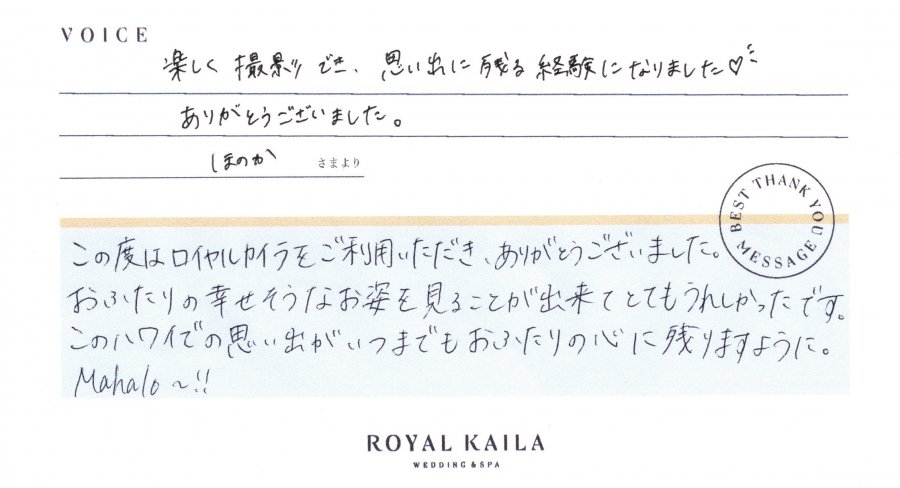 VOICE
楽しく撮影でき、思い出に残る経験になりました♡
ありがとうございました。
ほのか さまより
BEST THANK YOU MESSAGE
この度はロイヤルカイラをご利用いただき、ありがとうございました。
おふたりの幸せそうなお姿を見ることが出来てとてもうれしかったです。
このハワイでの思い出がいつまでもおふたりの心に残りますように。
Mahalo～!!
ROYAL KAILA
WEDDING & SPA